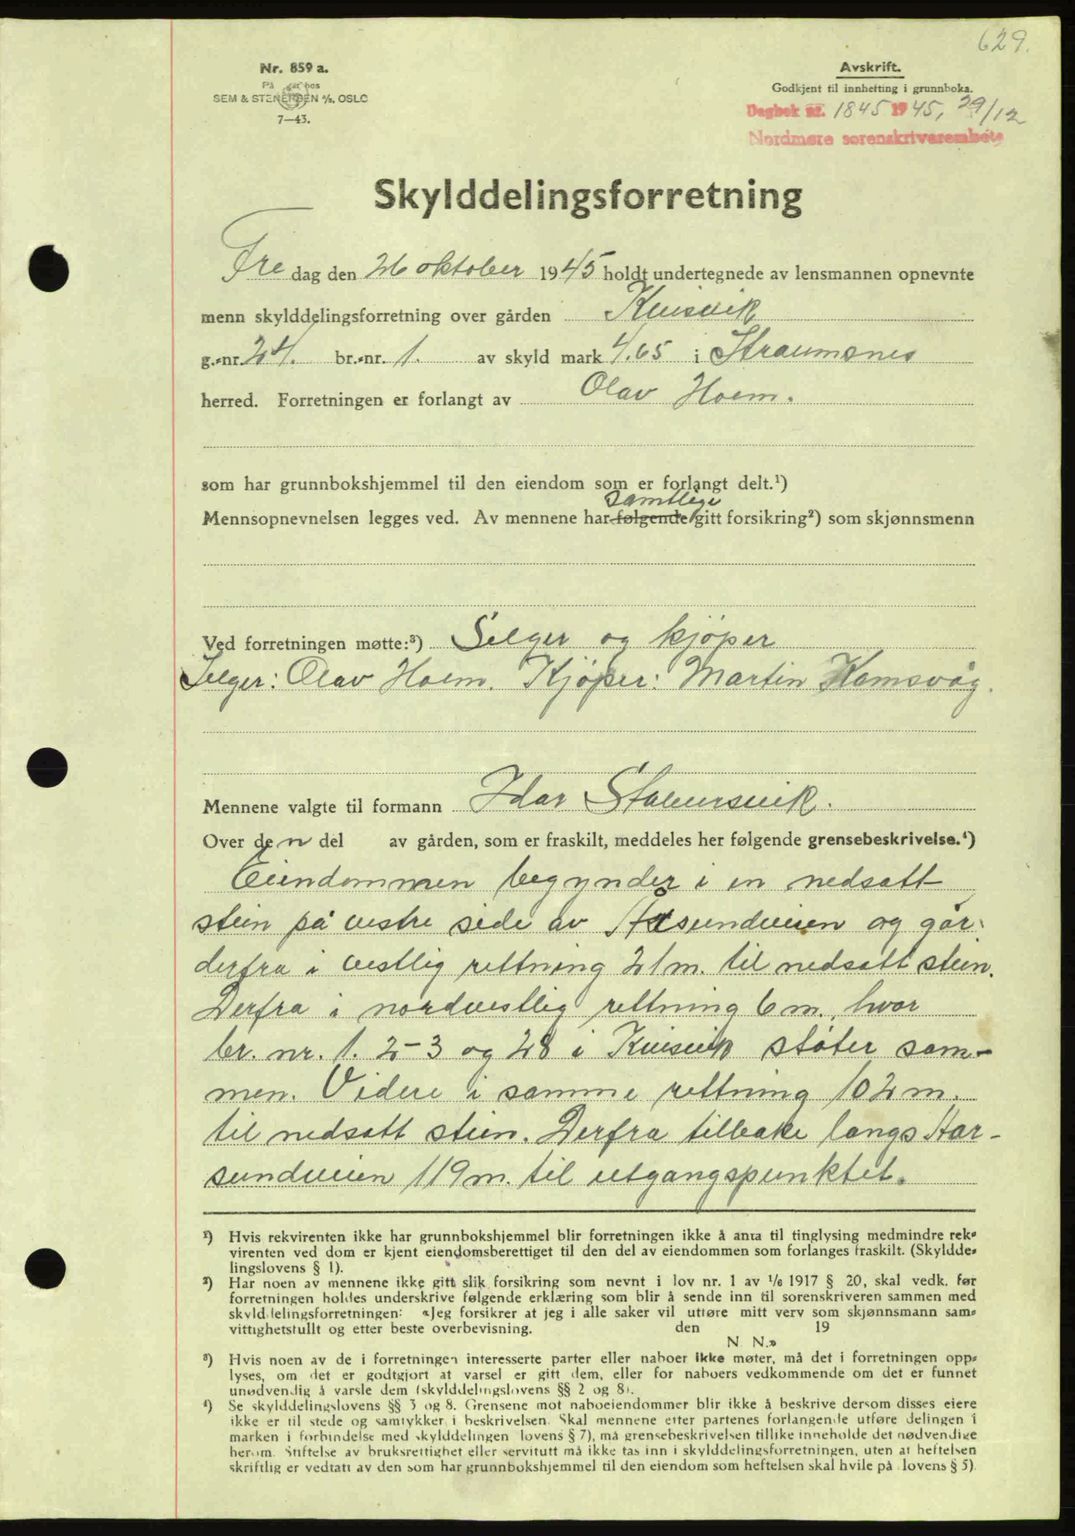 629.
Nr. 859 a.
På lager hos
SEM & STENERSEN A/S, OSLO
7—43.
Avskrift.
Godkjent til innhefting i grunnboka.
Dagbok nr. 1845 1945, 29/12
Nordmøre sorenskriverembete
Skylddelingsforretning
Fre dag den 26 oktober 1945 holdt undertegnede av lensmannen opnevnte
menn skylddelingsforretning over gården Kvisvik
g.-nr. 24. br.-nr. 1. av skyld mark 4.65 i Straumsnes
herred. Forretningen er forlangt av Olav Hoem.
som har grunnbokshjemmel til den eiendom som er forlangt delt.¹)
samtlige
Mennsopnevnelsen legges ved. Av mennene har følgende gitt forsikring²) som skjønnsmenn
Ved forretningen møtte:³) Selger og kjøper
Selger: Olav Hoem. Kjøper: Martin Kamsvåg.
Mennene valgte til formann Idar Stabursvik.
Over den del av gården, som er fraskilt, meddeles her følgende grensebeskrivelse.⁴)
Eiendommen begynder i en nedsatt
stein på vestre side av sundveien og går
derfra i vestlig rettning 21 m. til nedsatt stein.
Derfra i nordvestlig rettning 6 m., hvor
br. nr. 1. 2-3 og 28 i Kvisvik støter sam-
men. Videre i samme rettning 102 m.
til nedsatt stein. Derfra tilbake langs Kor-
sundveien 119 m. til utgangspunktet.
¹) Hvis rekvirenten ikke har grunnbokshjemmel blir forretningen ikke å anta til tinglysing medmindre rek-
virenten ved dom er kjent eiendomsberettiget til den del av eiendommen som forlanges fraskilt. (Skyldde-
lingslovens § 1).
²) Har noen av mennene ikke gitt slik forsikring som nevnt i lov nr. 1 av 1/6 1917 § 20, skal vedk. før
forretningen holdes underskrive følgende erklæring som blir å sende inn til sorenskriveren sammen med
skylddelingsforretningen: «Jeg forsikrer at jeg i alle saker vil utføre mitt verv som skjønnsmann sam-
vittighetsfullt og etter beste overbevisning. den 19
N N.»
³) Hvis noen av de i forretningen interesserte parter eller naboer ikke møter, må det i forretningen opp-
lyses, om det er godtgjort at varsel er gitt dem, eller for naboers vedkommende om det er funnet
unødvendig å varsle dem (skylddelingslovens §§ 2 og 8).
⁴) Se skylddelingslovens §§ 3 og 8. Grensene mot naboeiendommer blir ikke å beskrive dersom disses eiere
ikke er til stede og samtykker i beskrivelsen. Skal mennene etter partenes forlangende utføre delingen i
marken i forbindelse med skylddelingen (lovens § 7), må grensebeskrivelsen tillike inneholde det nødvendige
herom. Stiftelse av bruksrettighet eller servitutt må ikke tas inn i skylddelingsforretningen, uten at heftelsen
skriftlig er vedtatt av den som har grunnbokshjemmel til den eiendom som heftelsen skal hvile på (lovens § 5).